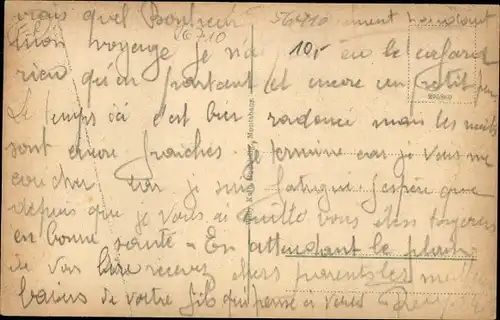 mais quel Bonheur 56710 vraiment pendant
mon voyage je n'ai 10,- eu le cafard
56710
rien qu'en partant et encore un petit peu
Le temps ici c'est bien radouci mais les nuits
sont encore fraiches. Je termine car je vais me
coucher car je suis fatigué j'espère que
depuis que je vous ai quitté vous êtes toujours
en bonne santé - En attendant le plaisir
de vous lire recevez chers parents les meilleurs
baisers de votre fils qui pense à vous